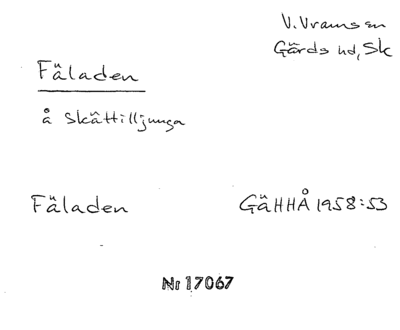 V. Vramsån
Gärds hd, Sk
Fäladen
å Skättilljunga
Fäladen GäHHÅ 1958:53
Nr 17067